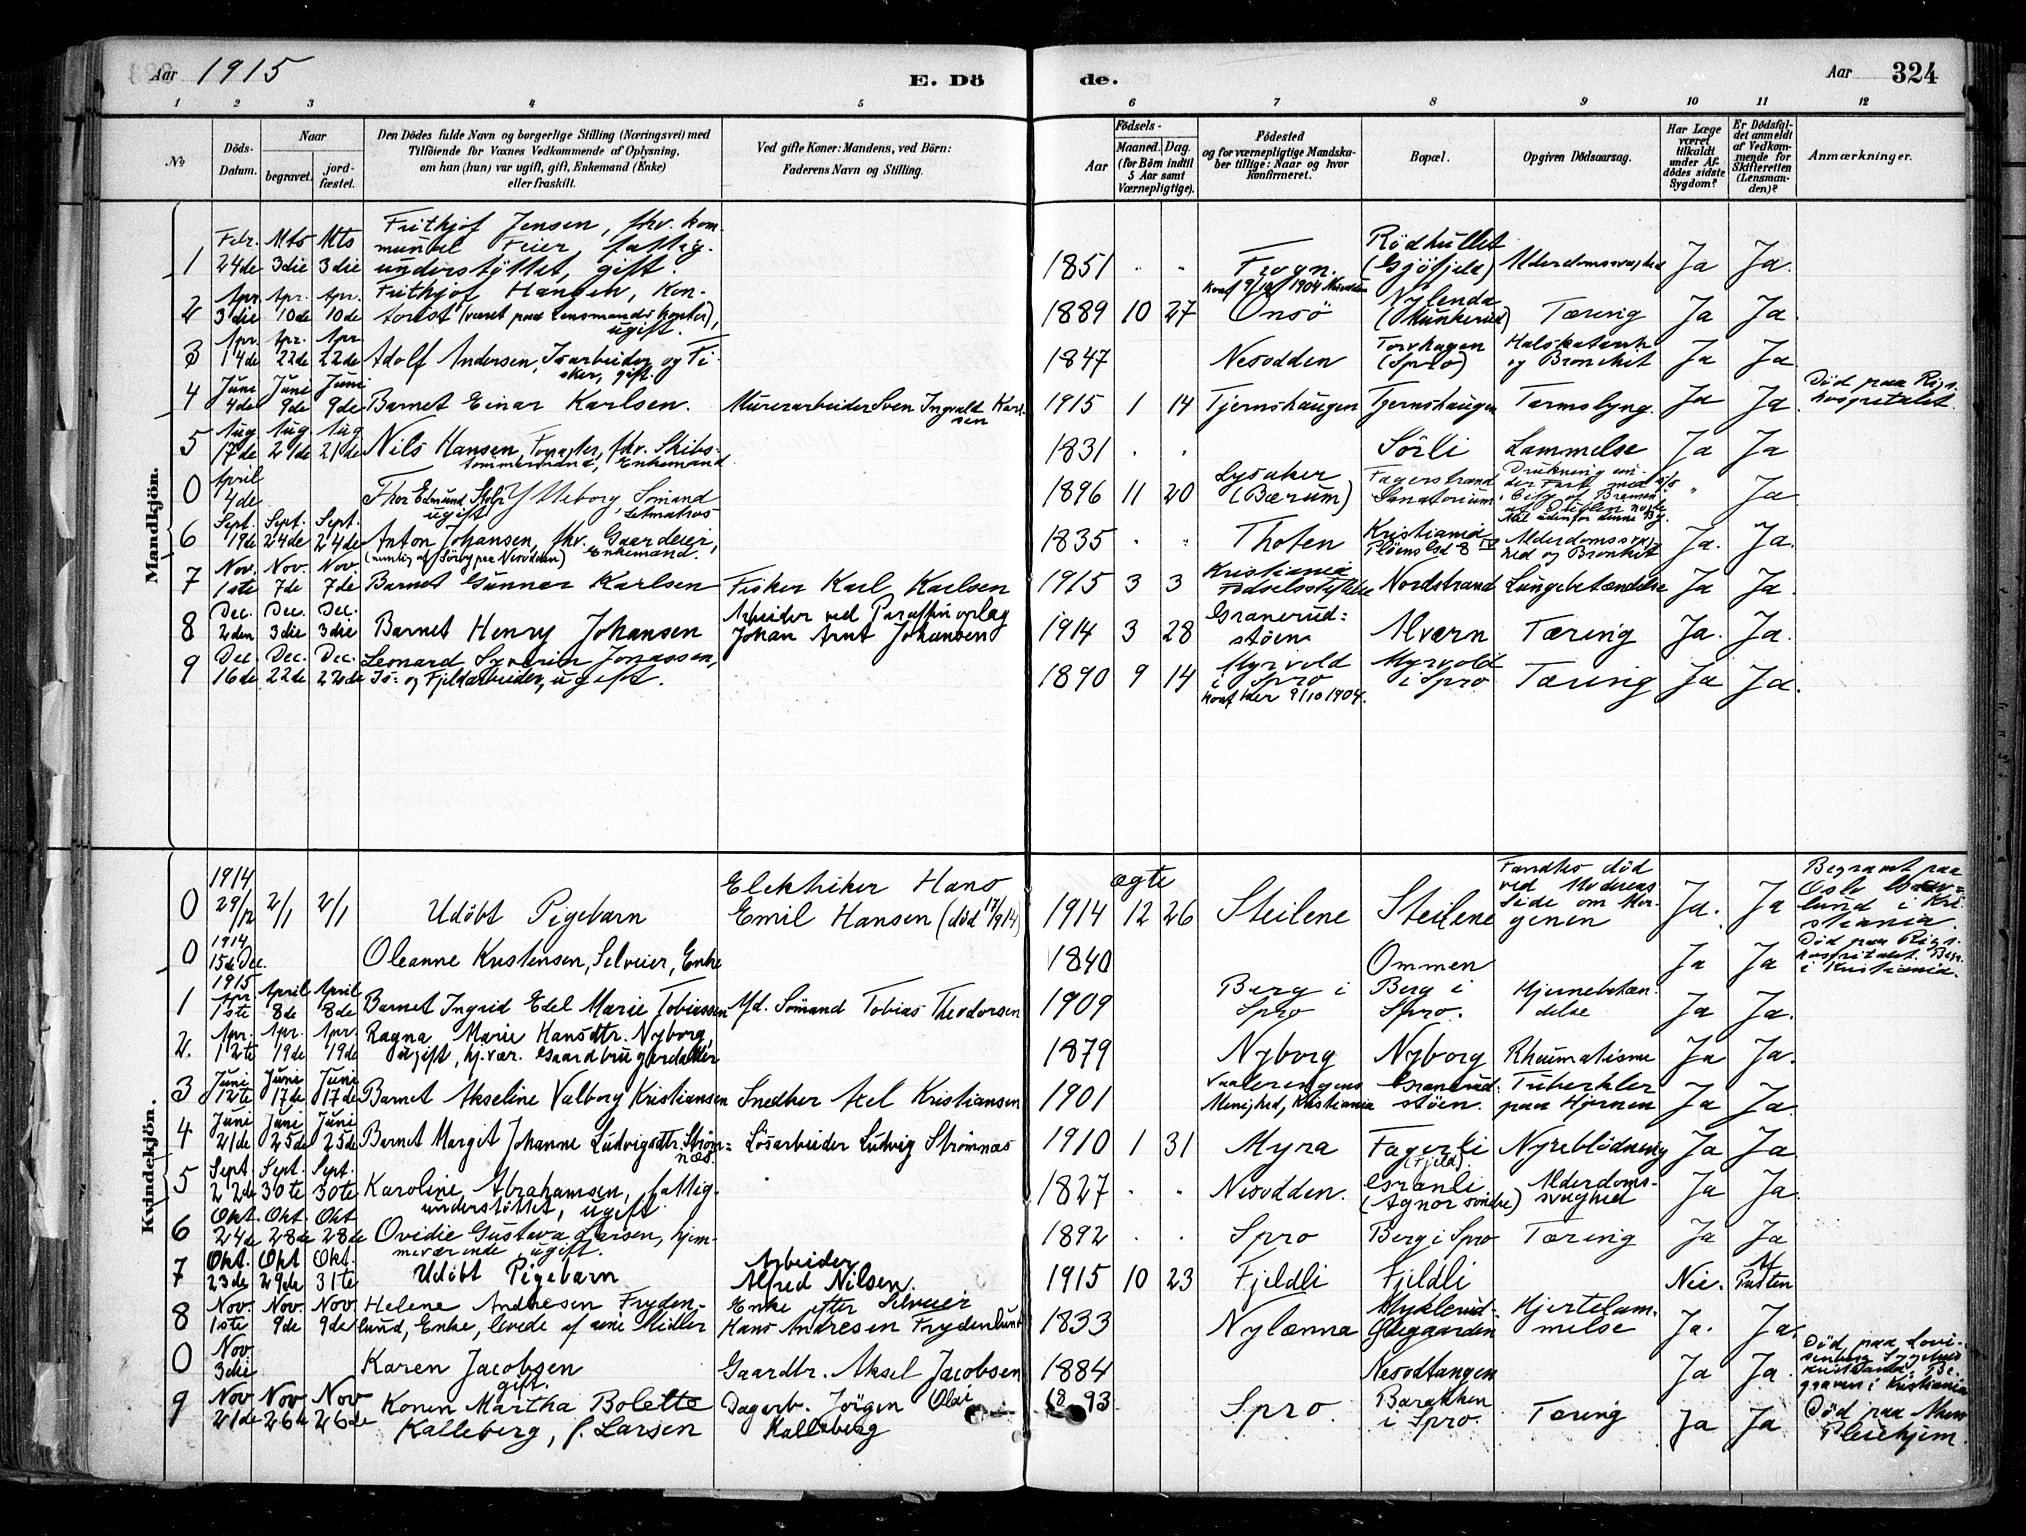 Aar 1915
E. Döde.
Aar 324
1 2 3 4 5 6 7 8 9 10 11 12
No
Döds-Datum.
Naar
begravet.
jord-fæstet.
Den Dödes fulde Navn og borgerlige Stilling (Næringsvei) med
Tilföiende for Voxnes Vedkommende af Oplysning,
om han (hun) var ugift, gift, Enkemand (Enke)
eller fraskilt.
Ved gifte Koner: Mandens, ved Börn:
Faderens Navn og Stilling.
Födsels-
Aar
Maaned. Dag.
(for Börn indtil
5 Aar samt
Værnepligtige).
Födested
og for værnepligtige Mandska-
ber tillige: Naar og hvor
Konfirmeret.
Bopæl.
Opgiven Dödsaarsag.
Har Læge
været
tilkaldt
under Af-
dödes sidste
Sygdom?
Er Dödsfal-
det anmeldt
af Vedkom-
mende for
Skifteretten
(Lensman-
den)?
Anmærkninger.
Mandkjön.
1 Febr. 24de Mts 3die Mts 3die Frithjof Jensen, fhv. kom-
munal Feier, fattig-
understöttet, gift. 1851 " " Frogn. Rödhullet (Gjöfjeld) Alderdomssvaghed Ja Ja.
2 Apr. 3die Apr. 10de Apr. 10de Frithjof Hansen, Kon-
torist (været paa Lensmandskontor),
ugift. 1889 10 27 Konf 9/10 1904 Nesodden
Onsö Nylenda (Munkerud) Tæring Ja Ja.
3 Apr. 14de Apr. 22de Apr 22de Adolf Andersen, Isarbeider og Fi-
sker, gift. 1847 Nesodden Torvhagen (Spro) Halskatarrh
og Bronchit Ja Ja.
4 Juni 4de Juni 9de Juni 9de Barnet Einar Karlsen. Murerarbeider Sven Ingvald Karl-
sen 1915 1 14 Tjernshaugen Tjernshaugen Tarmslyng. Ja Ja Död paa Rigs-
hospitalet.
5 Aug 17de Aug. 21de Aug 21de Nils Hansen, fhv. Skibs-
tömmermand, Enkemand. 1831 " " Sörli Lammelse Ja Ja
0 April 4de Thor Edmund Ytteborg, Sömand
ugift, Letmatros 1896 11 20 Lysaker (Bærum) Fagerstrand
Sanatorium. Drukning un-
der Fart med s/s
City of Bremen " Ja
6 Sept. 19de Sept. 24de Sept. 24de Anton Johansen, fhv. Gaardeier,
(nemlig af Sörby paa Nesodden) Enkemand. 1835 " " Thoten Kristiania Alderdomssvag-
hed og Bronkit Ja. Ja.
7 Nov. 1ste Nov. 7de Nov 7de Barnet Gunnar Karlsen Fisker Karl Karlsen 1915 3 3 Kristiania
Födselsstiftelse Nordstrand Lungebetændelse Ja Ja.
8 Dec. 2den Dec. 3die Dec. 3die Barnet Henry Johansen Arbeider ved Paraffinoplag
Johan Arnt Johansen 1914 3 28 Granerud=
stöen Alværn Tæring Ja. Ja.
9 Dec. 16de Dec. 22de Dec. 22de Leonard Syverin Jonassen,
Is- og Fjeldarbeider, ugift. 1890 9 14 Myrvold
i Spro
Konf her 9/10 1904. Myrvold
i Spro Tæring Ja Ja.
Kvindekjön.
0 1914 29/12 2/1 2/1 Udöbt Pigebarn Elektriker Hans
Emil Hansen (död 17/9 14) ægte
1914 12 26 Steilene Steilene Fandtes död
ved Moderens
Side om Mor-
genen Ja. Ja Begravet paa
Oslo
lund i Kri-
stiania.
0 1914 15de Dec. Oleanne Kristensen, Selveier, Enke 1840 Ommen Ja Ja Död paa Rigs-
hospitalet. Begr.
i Kristiania.
1 1915 Apr. 1ste April 8de April 8de Barnet Ingrid Edel Marie Tobiassen Sömand Tobias Theodorsen 1909 Berg i
Spro Berg i
Spro. Hjernebetæn-
delse Ja Ja.
2. Apr. 12te Apr. 19de Apr. 19de Ragna Marie Hansdtr. Nyborg,
ugift, hj.vær. Gaardbrugerdatter 1879 Nyborg Nyborg Rheumatisme Ja Ja.
3 Juni 12te Juni 17de Juni 17de Barnet Akseline Valborg Kristiansen Snedker Axel Kristiansen 1901 Vaalerengens
Menighed, Kristiania Granerud-
stöen. Tuberkler
paa Hjernen Ja Ja
4 Juni 21de Juni 25de Juni 25de Barnet Margit Johanne Ludvigsdtr. Ström=
næs. Lösarbeider Ludvig Strömnæs 1910 1 31 Myra Fagerli
(Fjeld). Nyreblödning Ja Ja
5 Sept. 22de Sept. 30te Sept. 30te Karoline Abrahamsen, fattig-
understöttet, ugift. 1827 " " Nesodden. Granli
(Agnor söndre) Alderdoms-
svaghed Ja Ja.
6 Okt. 24de Okt. 28de Okt 28de Ovidie Gustava Larsen, hjem-
meværende, ugift. 1892 Spro Berg i Spro Tæring Ja Ja
7 Okt. 23de Okt 29de Okt. 31te Udöbt Pigebarn Arbeider
Alfred Nilsen. 1915 10 23 Fjeldli Fjeldli Nei. Af
Præsten
8 Nov. 1ste Nov. 9de Nov 9de Helene Andresen Fryden-
lund, Enke, levede af sine Midler Enke efter Selveier
Hans Andresen Frydenlund 1833 Nylænna Myklerud-
Ödegaarden Hjertelam-
melse Ja. Ja.
0 Nov 3die Karen Jacobsen
gift. Gaardbr. Aksel Jacobsen 1884 Nesodtangen Ja Ja. Död paa Lovi-
senberg Sygehus
Kristiania. Be-
graven i Kristiania
9 Nov 21de Nov 26de Nov 26de Konen Martha Bolette
Kalleberg, f. Larsen Dagarb. Jörgen Olai
Kalleberg 1893 Spro. Barakken
i Spro. Tæring Ja Ja Död paa
Pleiehjem.